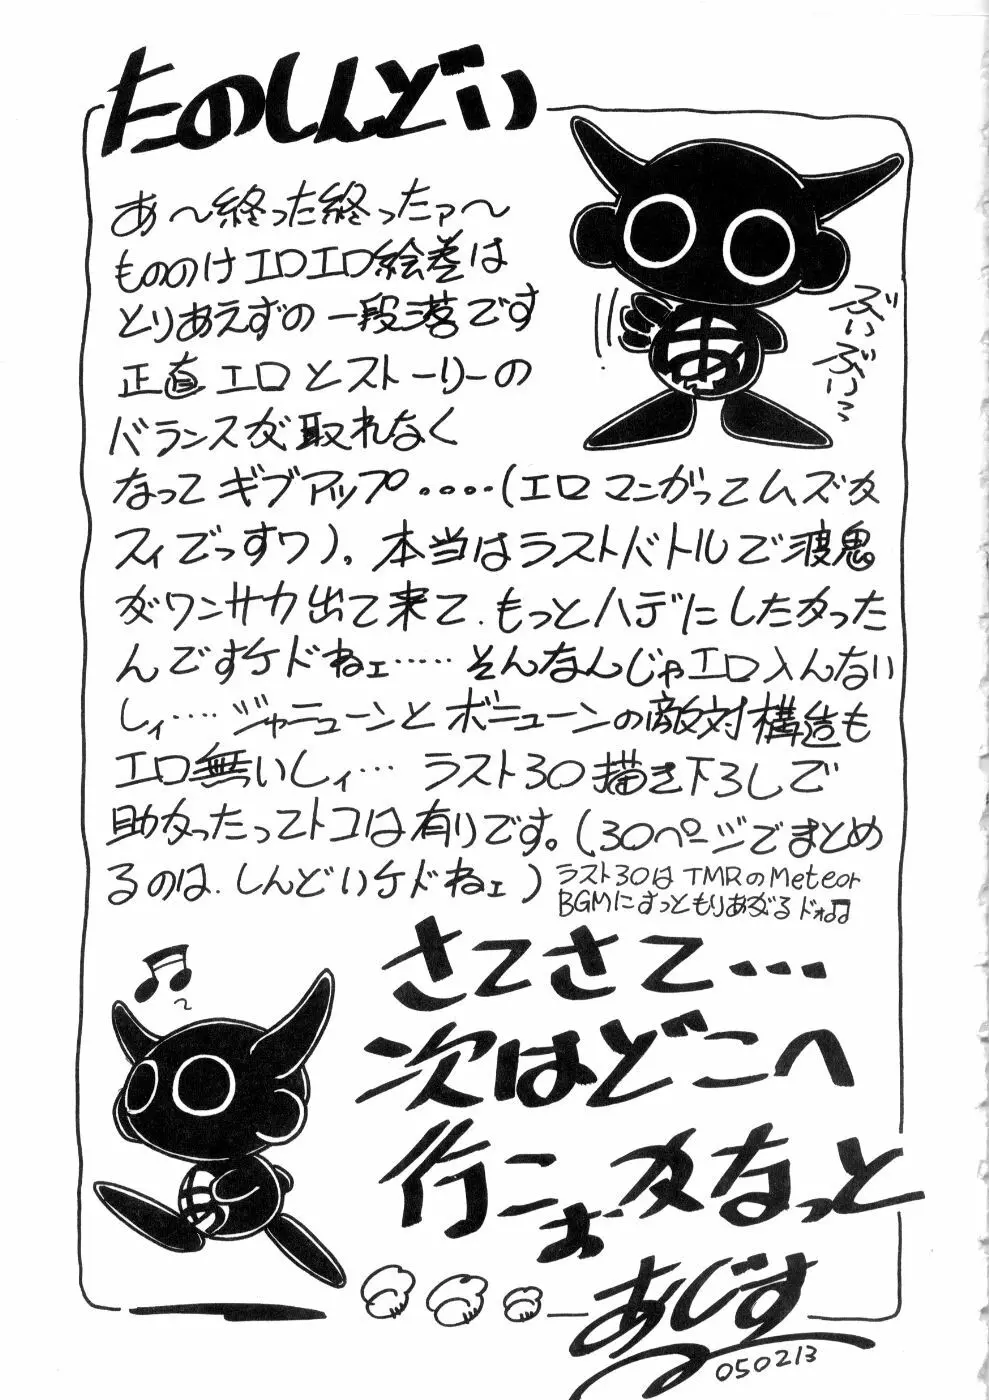 たのしんどい
あ〜終った終ったァ〜
もののけエロエロ絵巻は
とりあえずの一段落です
正直エロとストーリーの
バランスが取れなく
なってギブアップ・・・・(エロマンガってムズカ
スィでっすワ)。本当はラストバトルで渡鬼
がワンサカ出て来て、もっとハデにしたかった
んですケドねェ……そんなんじゃエロ入んない
しィ‥‥ジャニューンとボニューンの敵対構造も
エロ無いしィ…ラスト30描き下ろしで
助かったってトコは有りです。(30ページでまとめ
るのは、しんどいケドねェ)
ラスト30はTMRのMeteor
BGMにすっともりあがるドォ♫
ぶいぶいっ
あ
♫
あ
さてさて…
次はどこへ
行こぉかなっと
あじす
050213